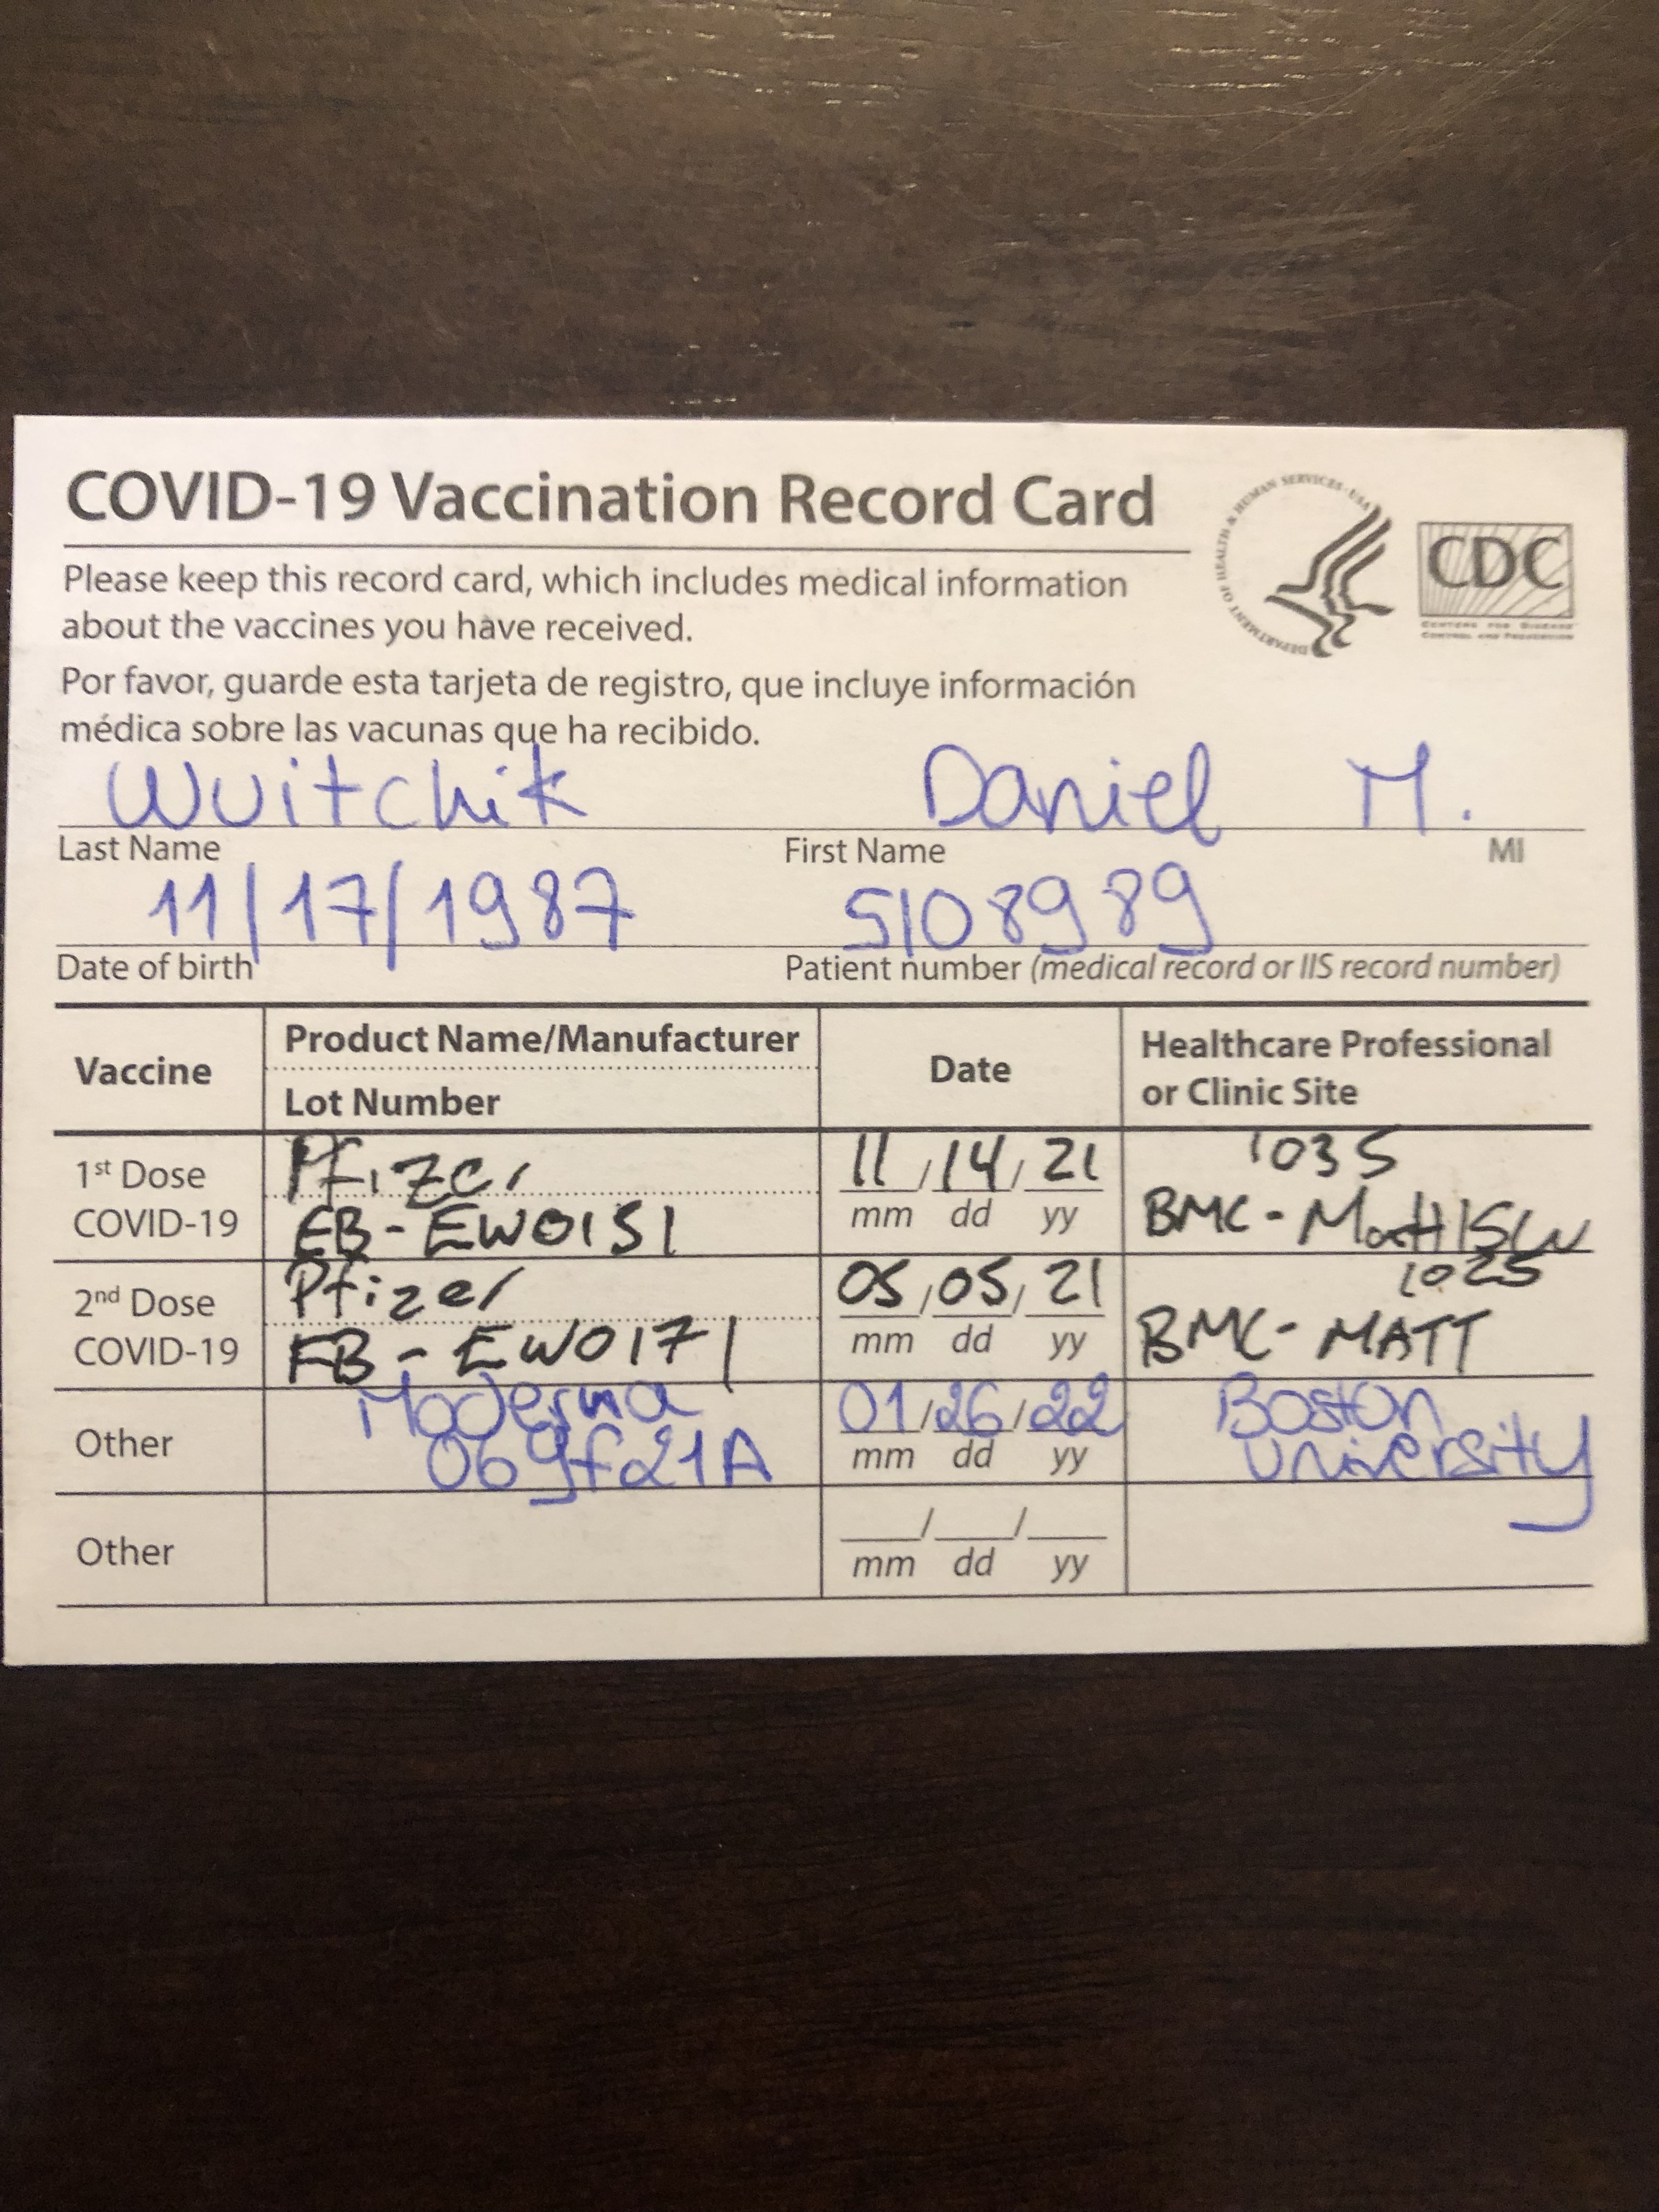 COVID-19 Vaccination Record Card
DEPARTMENT OF HEALTH & HUMAN SERVICES · USA
CDC
CENTERS FOR DISEASE
CONTROL AND PREVENTION
Please keep this record card, which includes medical information
about the vaccines you have received.
Por favor, guarde esta tarjeta de registro, que incluye información
médica sobre las vacunas que ha recibido.
Wuitchik Daniel M.
Last Name First Name MI
11/17/1987 5108989
Date of birth Patient number (medical record or IIS record number)
Vaccine Product Name/Manufacturer Date Healthcare Professional
Lot Number or Clinic Site
1st Dose Pfizer 11/14/21 1035
COVID-19 EB-EW0151 mm dd yy BMC-
2nd Dose Pfizer 05/05/21 1025
COVID-19 EB-EW0171 mm dd yy BMC-MATT
Other Moderna 01/26/22 Boston
069f21A mm dd yy University
Other __/__/__
mm dd yy